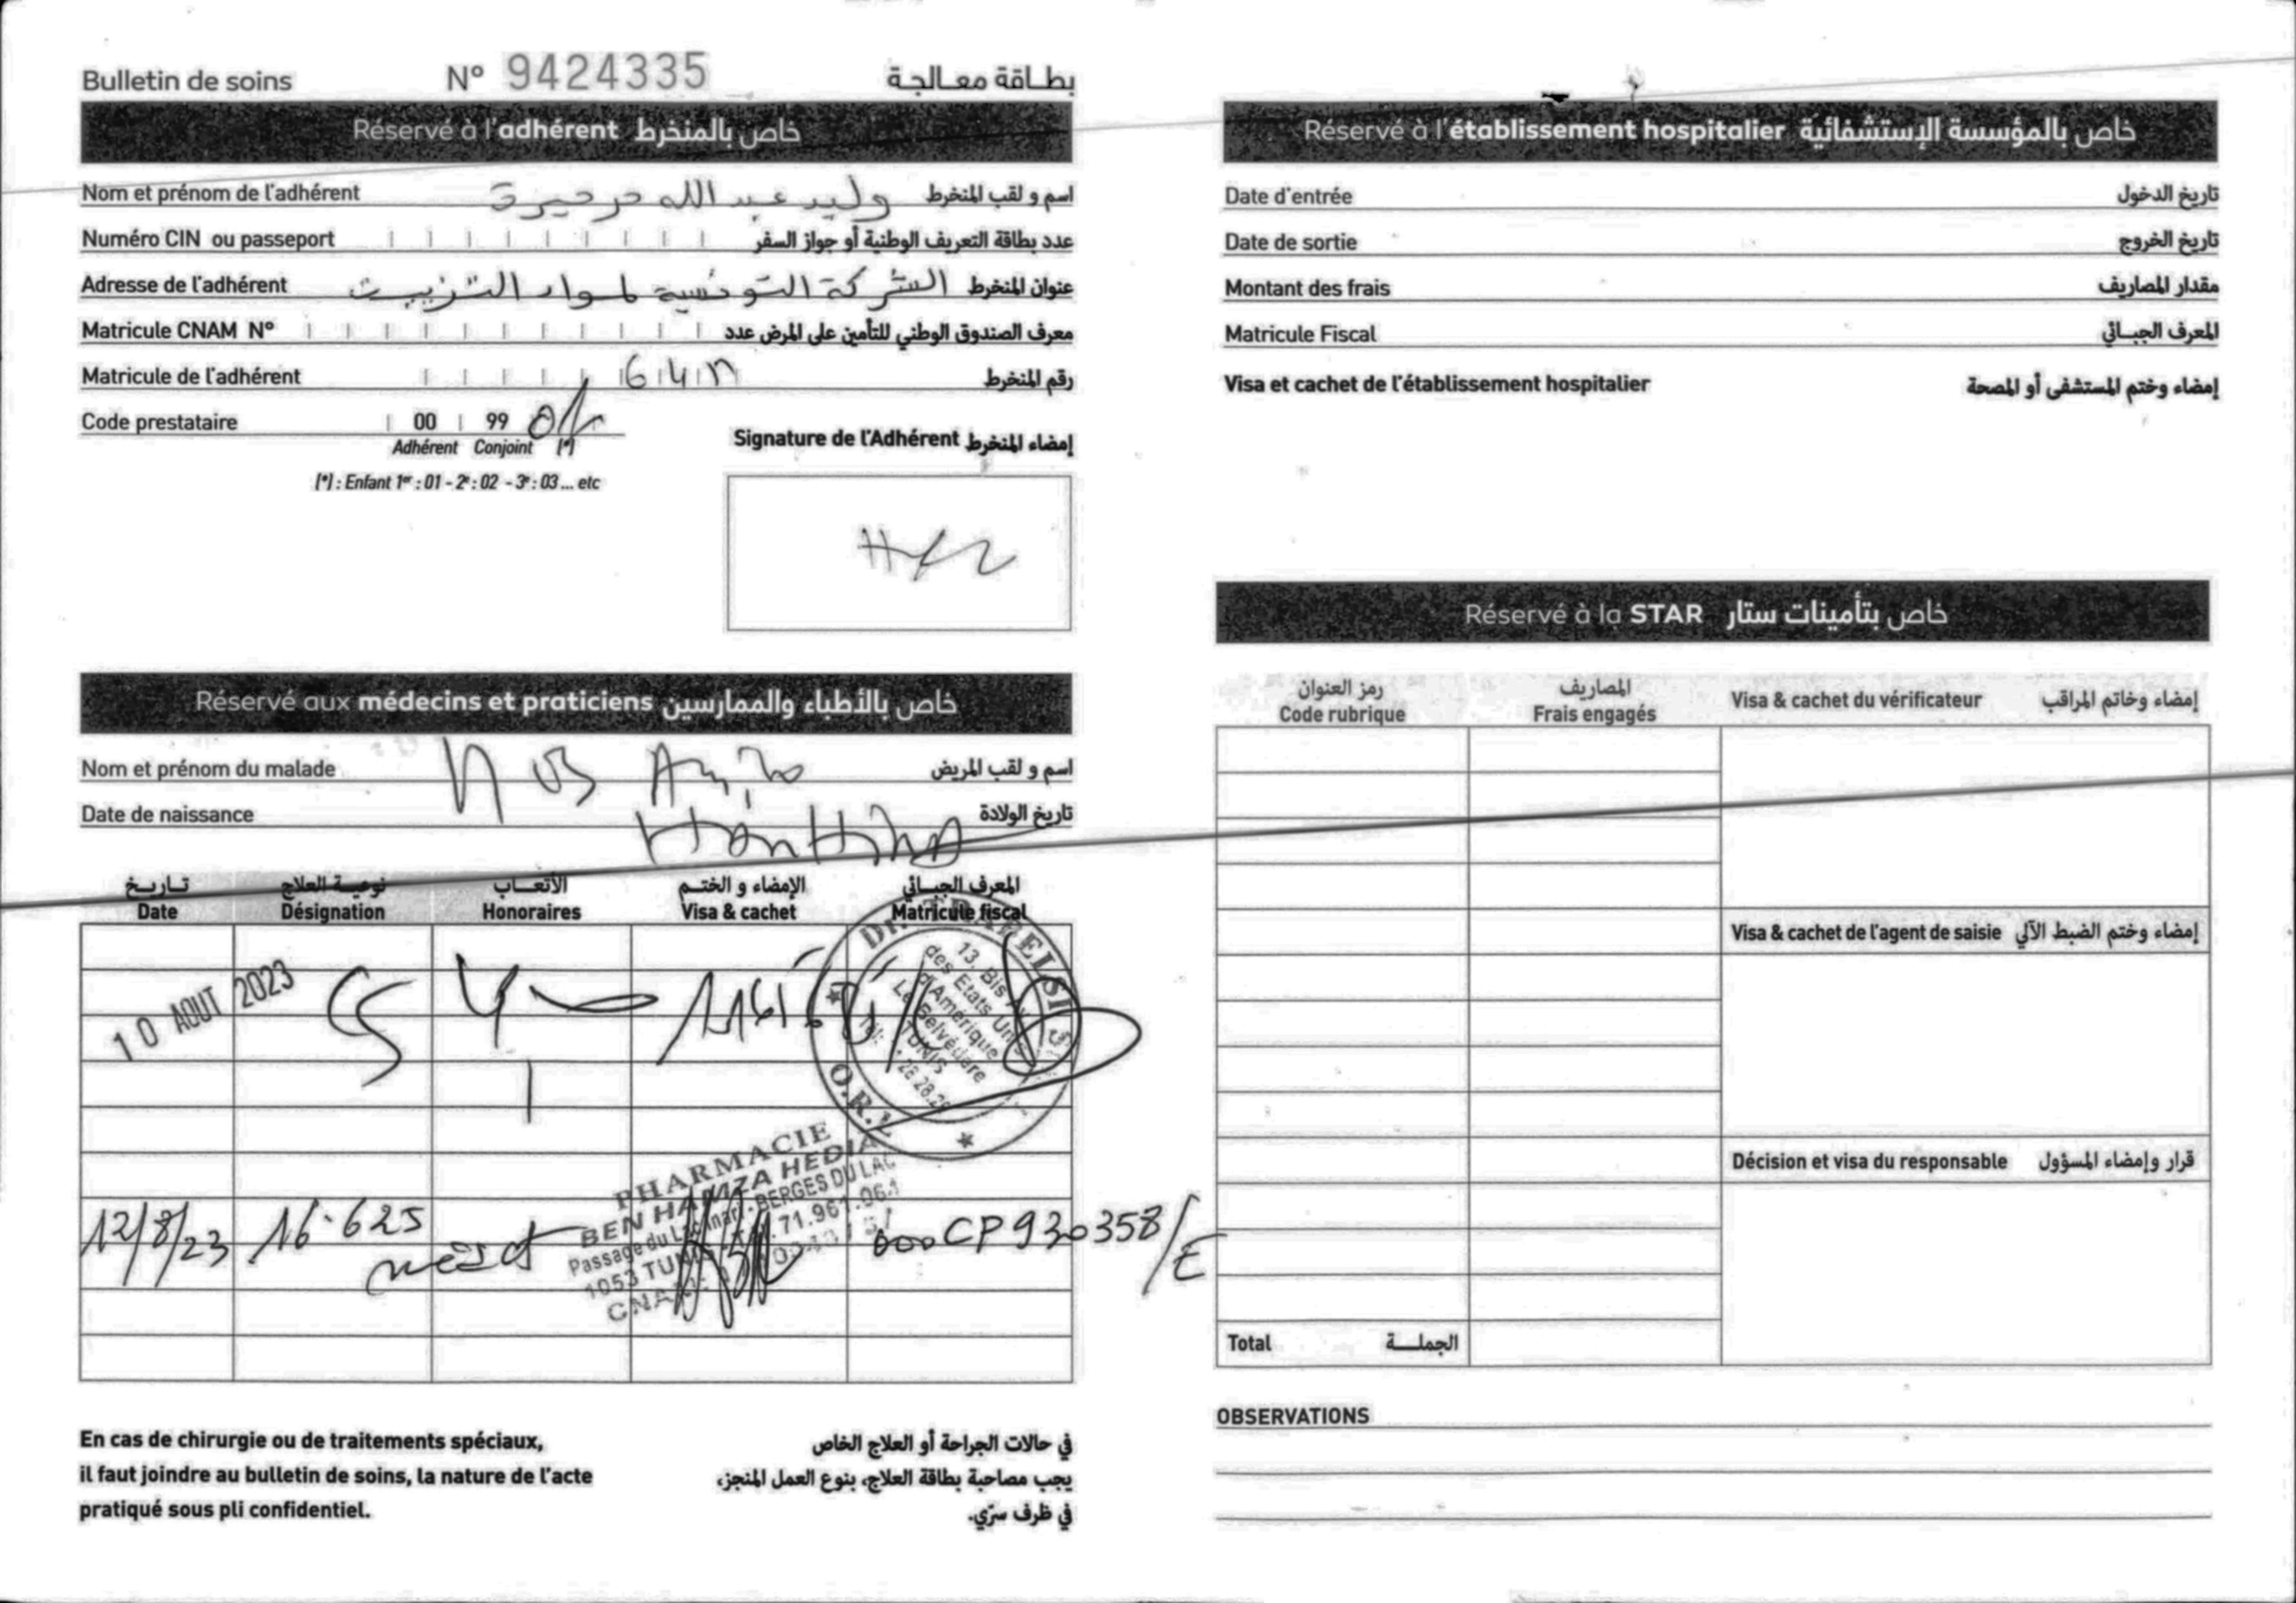 Bulletin de soins N° 9424335 بطاقة معالجة
Réservé à l'adhérent خاص بالمنخرط
Nom et prénom de l'adhérent وليد عبد الله اسم و لقب المنخرط
Numéro CIN ou passeport عدد بطاقة التعريف الوطنية أو جواز السفر
Adresse de l'adhérent الشركة التونسية لمواد التزييت عنوان المنخرط
Matricule CNAM N° معرف الصندوق الوطني للتأمين على المرض عدد
Matricule de l'adhérent رقم المنخرط
Code prestataire 00 99
Adhérent Conjoint (*)
(*) : Enfant 1er : 01 - 2e : 02 - 3e : 03 ... etc
Signature de l'Adhérent إمضاء المنخرط
Réservé aux médecins et praticiens خاص بالأطباء والممارسين
Nom et prénom du malade اسم و لقب المريض
Date de naissance تاريخ الولادة
تاريخ نوعية العلاج الأتعاب الإمضاء و الختم المعرف الجبائي
Date Désignation Honoraires Visa & cachet Matricule fiscal
10 AOUT 2023
13, Bis
des Etats Unis
d'Amérique
Le Belvédère
TUNIS
O.R.L
PHARMACIE
BEN HAMZA HEDIA
Passage du Lac BERGES DU LAC
1053 TUNIS 71.961.061
12/8/23 16.625 000CP930358/E
En cas de chirurgie ou de traitements spéciaux,
il faut joindre au bulletin de soins, la nature de l'acte
pratiqué sous pli confidentiel.
في حالات الجراحة أو العلاج الخاص
يجب مصاحبة بطاقة العلاج، بنوع العمل المنجز،
في ظرف سرّي.
Réservé à l'établissement hospitalier خاص بالمؤسسة الإستشفائية
Date d'entrée تاريخ الدخول
Date de sortie تاريخ الخروج
Montant des frais مقدار المصاريف
Matricule Fiscal المعرف الجبائي
Visa et cachet de l'établissement hospitalier إمضاء وختم المستشفى أو المصحة
Réservé à la STAR خاص بتأمينات ستار
رمز العنوان المصاريف
Code rubrique Frais engagés Visa & cachet du vérificateur إمضاء وخاتم المراقب
Visa & cachet de l'agent de saisie إمضاء وختم الضبط الآلي
Décision et visa du responsable قرار وإمضاء المسؤول
Total الجملة
OBSERVATIONS